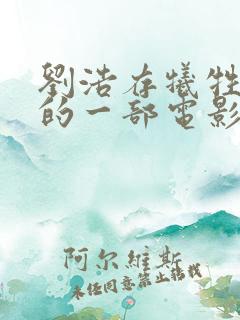 劉浩存犧牲
的一部電影
阿尔維斯
未经同意禁止转载